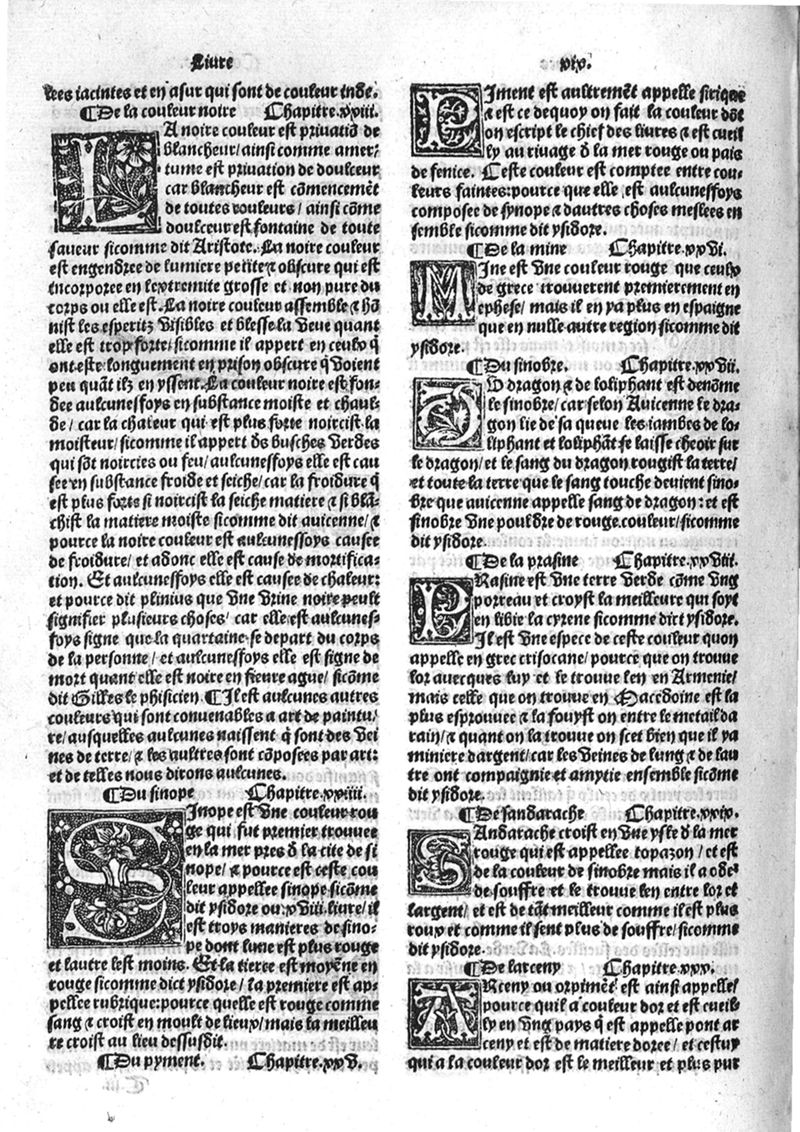 Liure
lees iacintes et en asur qui sont de couleur inde.
¶De la couleur noire Chapitre.xxiii.
LA noire couleur est priuatiõ de
blancheur/ainsi comme amer/
tume est priuation de doulceur
car blancheur est cõmencemẽt
de toutes couleurs/ ainsi cõme
doulceur est fontaine de toute
saueur sicomme dit Aristote. La noire couleur
est engendree de lumiere petite ⁊ obscure qui est
incorporee en lextremite grosse et non pure du
corps ou elle est. La noire couleur assemble ⁊ hõ
nist les esperitz visibles et blesse la veue quant
elle est trop forte/ sicomme il appert en ceulx q̃
ont este longuement en prison obscure q̃ voient
peu quãt ilz en yssent. La couleur noire est fon/
dee aulcunesfoys en substance moiste et chaul/
de/ car la chaleur qui est plus forte noircist la
moisteur/ sicomme il appert ðs busches verdes
qui sõt noircies ou feu/ aulcunesfoys elle est cau
see en substance froide et seiche/ car la froidure q̃
est plus forte si noircist la seiche matiere ⁊ si blã/
chist la matiere moiste sicomme dit auicenne/ ⁊
pource la noire couleur est aulcunesfoys causee
de froidure/ et adonc elle est cause de mortifica/
tion. Et aulcunesfoys elle est causee de chaleur:
et pource dit plinius que vne vrine noire peult
signifier plusieurs choses/ car elle est aulcunes/
foys signe que la quartaine se depart du corps
de la personne/ et aulcunesfoys elle est signe de
mort quant elle est noire en fieure ague/ sicõme
dit Gilles le phisicien. ¶Il est aulcunes autres
couleurs qui sont conuenables a art de paintu/
re/ ausquelles aulcunes naissent q̃ sont des vei
nes de terre/ ⁊ les aultres sont cõposees par art:
et de telles nous dirons aulcunes.
¶Du sinope Chapitre.xxiiii.
SInope est vne couleur rou
ge qui fut premier trouuee
en la mer pres ð la cite de si
nope/ ⁊ pource est ceste cou
leur appellee sinope sicõme
dit ysidore ou.xviii.liure/ il
est troys manieres de sino/
pe dont lune est plus rouge
et lautre lest moins. Et la tierce est moyẽne en
rouge sicomme dict ysidore/ la premiere est ap/
pellee rubrique: pource quelle est rouge comme
sang ⁊ croist en moult de lieux/ mais la meilleu
re croist au lieu dessusdit.
¶Du pyment. Chapitre.xxv.
xix.
PIment est aultremẽt appelle sirique
⁊ est ce dequoy on fait la couleur dõt
on escript le chief des liures ⁊ est cueil
ly au riuage ð la mer rouge ou pais
de fenice. Ceste couleur est comptee entre cou/
leurs faintes: pource que elle est aulcunesfoys
composee de synope ⁊ dautres choses meslees en
semble sicomme dit ysidore.
¶De la mine Chapitre.xxvi.
MIne est vne couleur rouge que ceulx
de grece trouuerent premierement en
ephese/ mais il en ya plus en espaigne
que en nulle autre region sicomme dit
ysidore.
¶Du sinobre. Chapitre.xxvii.
DU dragon ⁊ de loliphant est denõme
le sinobre/ car selon Auicenne le dra/
gon lie de sa queue les iambes de lo/
liphant et loliphãt se laisse cheoir sur
le dragon/ et le sang du dragon rougist la terre/
et toute la terre que le sang touche deuient sino/
bre que auicenne appelle sang de dragon: et est
sinobre vne pouldre de rouge couleur/ sicomme
dit ysidore.
¶De la prasine Chapitre.xxviii.
PRasine est vne terre verde cõme vng
porreau et croyst la meilleure qui soyt
en libir la cyrene sicomme dict ysidore.
¶Il est vne espece de ceste couleur quon
appelle en grec crisocane/ pource que on trouue
lor auecques luy et le trouue len en Armenie/
mais celle que on trouue en Macedoine est la
plus esprouuee ⁊ la fouyst on entre le metail da
rain/ ⁊ quant on la trouue on scet bien que il ya
miniere dargent/ car les veines de lung ⁊ de lau
tre ont compaignie et amytie ensemble sicõme
dit ysidore.
¶De sandarache Chapitre.xxix.
SAndarache croist en vne ysle ð la mer
rouge qui est appellee topazon/ et est
de la couleur de sinobre mais il a ode/
de souffre et le trouue len entre lor et
largent/ et est de tãt meilleur comme il est plus
roux et comme il sent plus de souffre/ sicomme
dit ysidore.
¶De larceny Chapitre.xxx.
ARceny ou orpimẽt est ainsi appelle/
pource quil a couleur dor et est cueil/
ly en vng pays q̃ est appelle pont ar
ceny et est de matiere doree/ et cestuy
qui a la couleur dor est le meilleur et plus pur